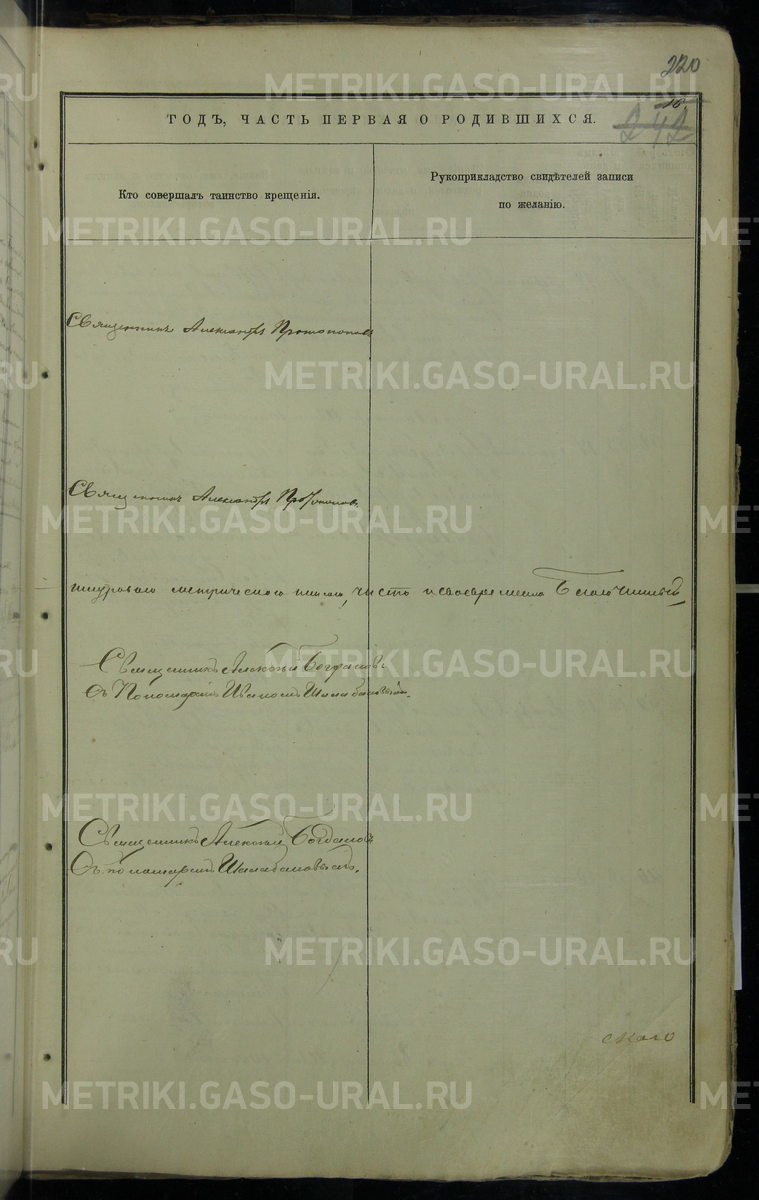 220
242
ГОДЪ, ЧАСТЬ ПЕРВАЯ О РОДИВШИХСЯ.
Кто совершалъ таинство крещенія.
Рукоприкладство свидѣтелей записи
по желанію.
Священникъ Александръ Протопоповъ
Священникъ Александръ Протопоповъ.
чисто и своевременно
Священникъ Алексѣй Богдановъ
Съ Пономаремъ Иваномъ
Священникъ Алексѣй Богдановъ
Съ пономаремъ
скаго
METRIKI.GASO-URAL.RU